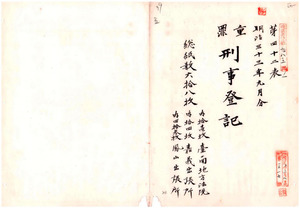 第四十二表
明治三十三年九月分
重罪
刑事登記
總紙數六拾八枚
內拾壱枚 臺南地方法院
內拾四枚 嘉義出張所
內四拾三枚 鳳山出張所